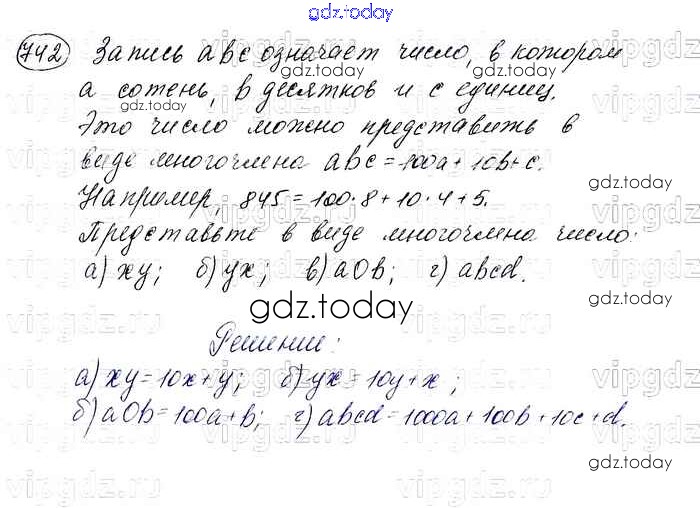 gdz.today
742 Запись abc означает число, в котором
gdz.today
a сотень, в десятков и с единиц.
Это число можно представить в
виде многочлена abc = 100a + 10b + c.
gdz.today
Например, 845 = 100·8 + 10·4 + 5.
Представьте в виде многочлена число:
а) xy; б) yx; в) a0b; г) abcd.
gdz.today
gdz.today
Решение:
а) xy = 10x + y; б) yx = 10y + x;
gdz.today
б) a0b = 100a + b; г) abcd = 1000a + 100b + 10c + d.
gdz.today